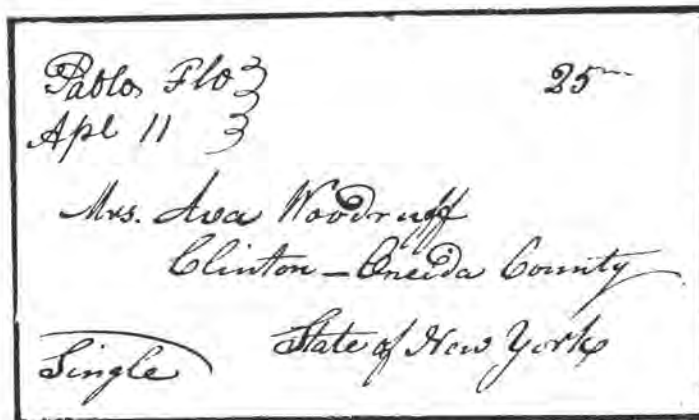 Pablo, Flo 25
Apl 11
Mrs. Ava Woodruff
Clinton - Oneida County
State of New York
Single